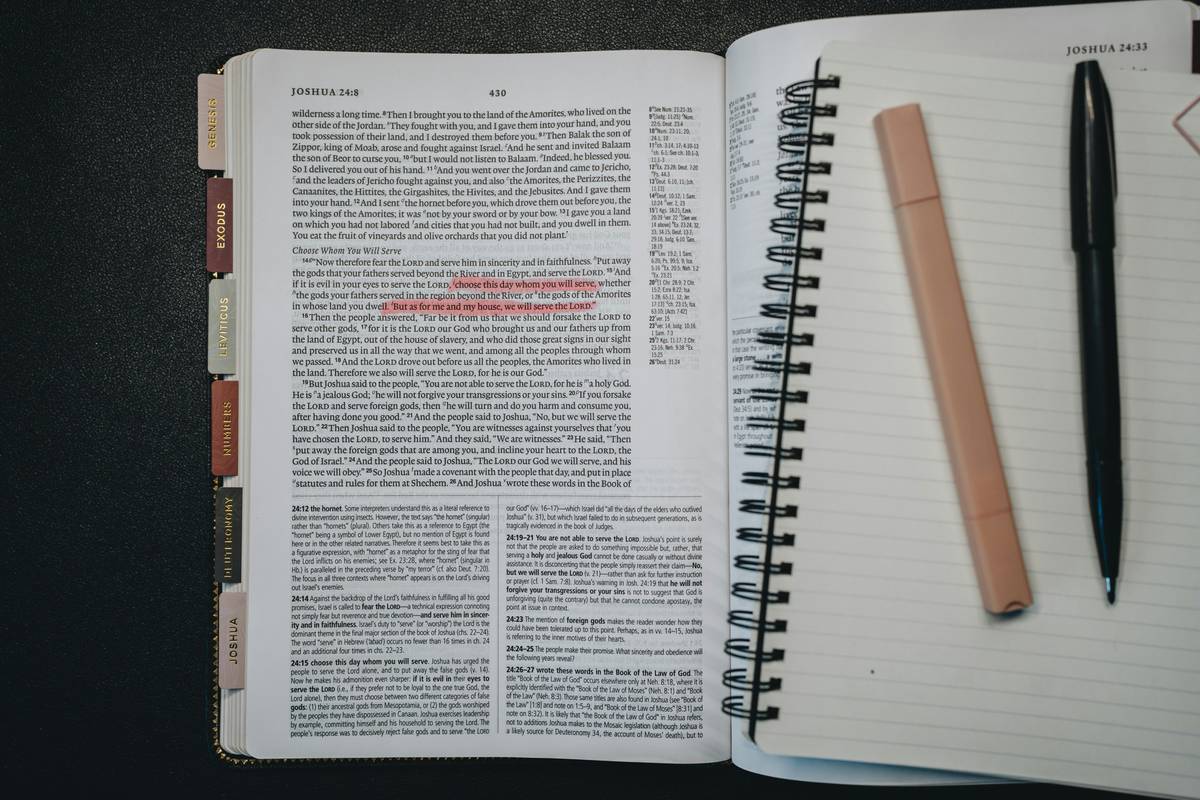 GENESIS
EXODUS
LEVITICUS
NUMBERS
DEUTERONOMY
JOSHUA
JOSHUA 24:8
430
wilderness a long time. 8Then I brought you to the land of the Amorites, who lived on
the other side of the Jordan. They fought with you, and I gave them into your hand, and you
took possession of their land, and I destroyed them before you. 9Then Balak the son of
Zippor, king of Moab, arose and fought against Israel. And he sent and invited Balaam
the son of Beor to curse you, 10but I would not listen to Balaam. Indeed, he blessed you.
So I delivered you out of his hand. 11And you went over the Jordan and came to Jericho,
and the leaders of Jericho fought against you, and also the Amorites, the Perizzites, the
Canaanites, the Hittites, the Girgashites, the Hivites, and the Jebusites. And I gave them
into your hand. 12And I sent the hornet before you, which drove them out before you, the
two kings of the Amorites; it was not by your sword or by your bow. 13I gave you a land
on which you had not labored and cities that you had not built, and you dwell in them.
You eat the fruit of vineyards and olive orchards that you did not plant.'
Choose Whom You Will Serve
14"Now therefore fear the LORD and serve him in sincerity and in faithfulness. Put away
the gods that your fathers served beyond the River and in Egypt, and serve the LORD. 15And
if it is evil in your eyes to serve the LORD, choose this day whom you will serve, whether
the gods your fathers served in the region beyond the River, or the gods of the Amorites
in whose land you dwell. But as for me and my house, we will serve the LORD."
16Then the people answered, "Far be it from us that we should forsake the LORD to
serve other gods, 17for it is the LORD our God who brought us and our fathers up from
the land of Egypt, out of the house of slavery, and who did those great signs in our sight
and preserved us in all the way that we went, and among all the peoples through whom
we passed. 18And the LORD drove out before us all the peoples, the Amorites who lived in
the land. Therefore we also will serve the LORD, for he is our God."
19But Joshua said to the people, "You are not able to serve the LORD, for he is a holy God.
He is a jealous God; he will not forgive your transgressions or your sins. 20If you forsake
the LORD and serve foreign gods, then he will turn and do you harm and consume you,
after having done you good." 21And the people said to Joshua, "No, but we will serve the
LORD." 22Then Joshua said to the people, "You are witnesses against yourselves that you
have chosen the LORD, to serve him." And they said, "We are witnesses." 23He said, "Then
put away the foreign gods that are among you, and incline your heart to the LORD, the
God of Israel." 24And the people said to Joshua, "The LORD our God we will serve, and his
voice we will obey." 25So Joshua made a covenant with the people that day, and put in place
statutes and rules for them at Shechem. 26And Joshua wrote these words in the Book of
24:12 the hornet. Some interpreters understand this as a literal reference to
divine intervention using insects. However, the text says "the hornet" (singular)
rather than "hornets" (plural). Others take this as a reference to Egypt (the
"hornet" being a symbol of Lower Egypt), but no mention of Egypt is found
here or in the other related narratives. Therefore it seems best to take this as
a figurative expression, with "hornet" as a metaphor for the sting of fear that
the Lord inflicts on his enemies; see Ex. 23:28, where "hornet" (singular in
Hb.) is paralleled in the preceding verse by "my terror" (cf. also Deut. 7:20).
The focus in all three contexts where "hornet" appears is on the Lord's driving
out Israel's enemies.
24:14 Against the backdrop of the Lord's faithfulness in fulfilling all his good
promises, Israel is called to fear the LORD—a technical expression connoting
not simply fear but reverence and true devotion—and serve him in sincer-
ity and in faithfulness. Israel's duty to "serve" (or "worship") the Lord is the
dominant theme in the final major section of the book of Joshua (chs. 22–24).
The word "serve" in Hebrew ('abad) occurs no fewer than 16 times in ch. 24
and an additional four times in chs. 22–23.
24:15 choose this day whom you will serve. Joshua has urged the
people to serve the Lord alone, and to put away the false gods (v. 14).
Now he makes his admonition even sharper: if it is evil in their eyes to
serve the LORD (i.e., if they prefer not to be loyal to the one true God, the
Lord alone), then they must choose between two different categories of false
gods: (1) their ancestral gods from Mesopotamia, or (2) the gods worshiped
by the peoples they have dispossessed in Canaan. Joshua exercises leadership
by example, committing himself and his household to serving the Lord. The
people's response was to decisively reject false gods and to serve "the LORD
our God" (vv. 16–17)—which Israel did "all the days of the elders who outlived
Joshua" (v. 31), but which Israel failed to do in subsequent generations, as is
tragically evidenced in the book of Judges.
24:19–21 You are not able to serve the LORD. Joshua's point is surely
not that the people are asked to do something impossible but, rather, that
serving a holy and jealous God cannot be done casually or without divine
assistance. It is disconcerting that the people simply reassert their claim—No,
but we will serve the LORD (v. 21)—rather than ask for further instruction
or prayer (cf. 1 Sam. 7:8). Joshua's warning in Josh. 24:19 that he will not
forgive your transgressions or your sins is not to suggest that God is
unforgiving (quite the contrary) but that he cannot condone apostasy, the
point at issue in context.
24:23 The mention of foreign gods makes the reader wonder how they
could have been tolerated up to this point. Perhaps, as in vv. 14–15, Joshua
is referring to the inner motives of their hearts.
24:24–25 The people make their promise. What sincerity and obedience will
the following years reveal?
24:26–27 wrote these words in the Book of the Law of God. The
title "Book of the Law of God" occurs elsewhere only at Neh. 8:18, where it is
explicitly identified with the "Book of the Law of Moses" (Neh. 8:1) and "Book
of the Law" (Neh. 8:3). Those same titles are also found in Joshua (see "Book of
the Law" [1:8] and note on 1:5–9, and "Book of the Law of Moses" [8:31] and
note on 8:32). It is likely that "the Book of the Law of God" in Joshua refers,
not to additions Joshua makes to the Mosaic legislation (although Joshua is
a likely source for Deuteronomy 34, the account of Moses' death), but to
JOSHUA 24:33